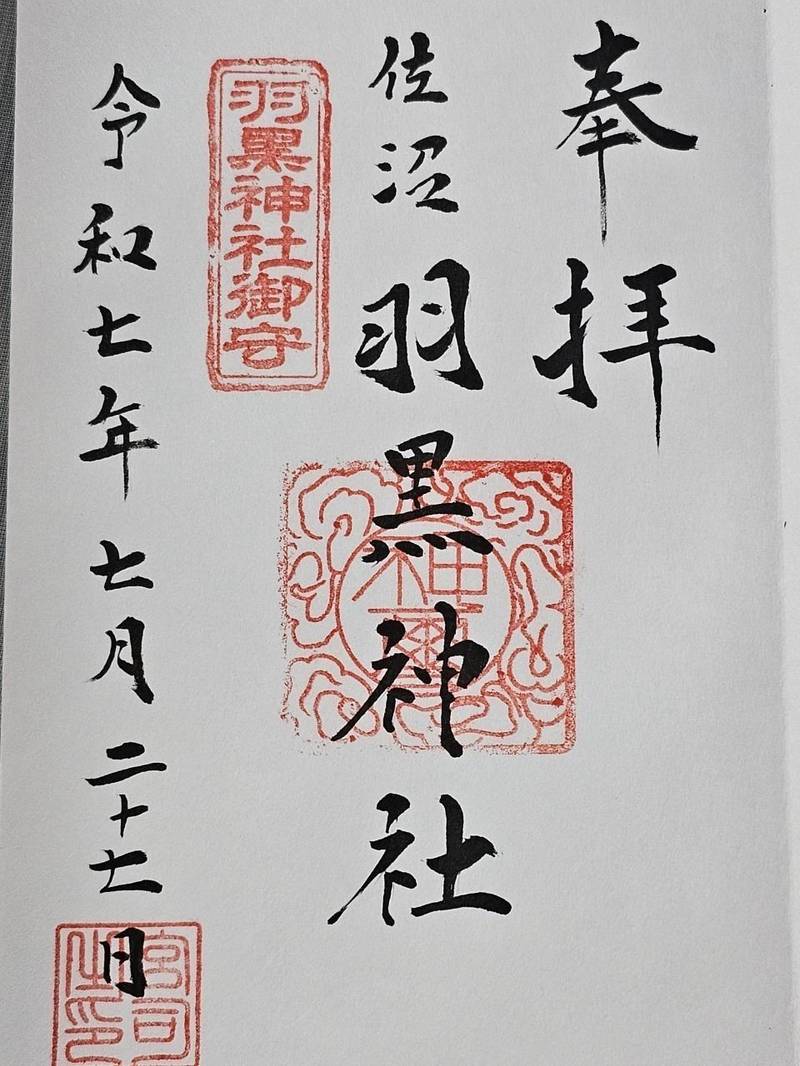 奉拝
佐沼
羽黒神社
神璽
羽黒神社御守
令和七年七月二十七日
宮司之印